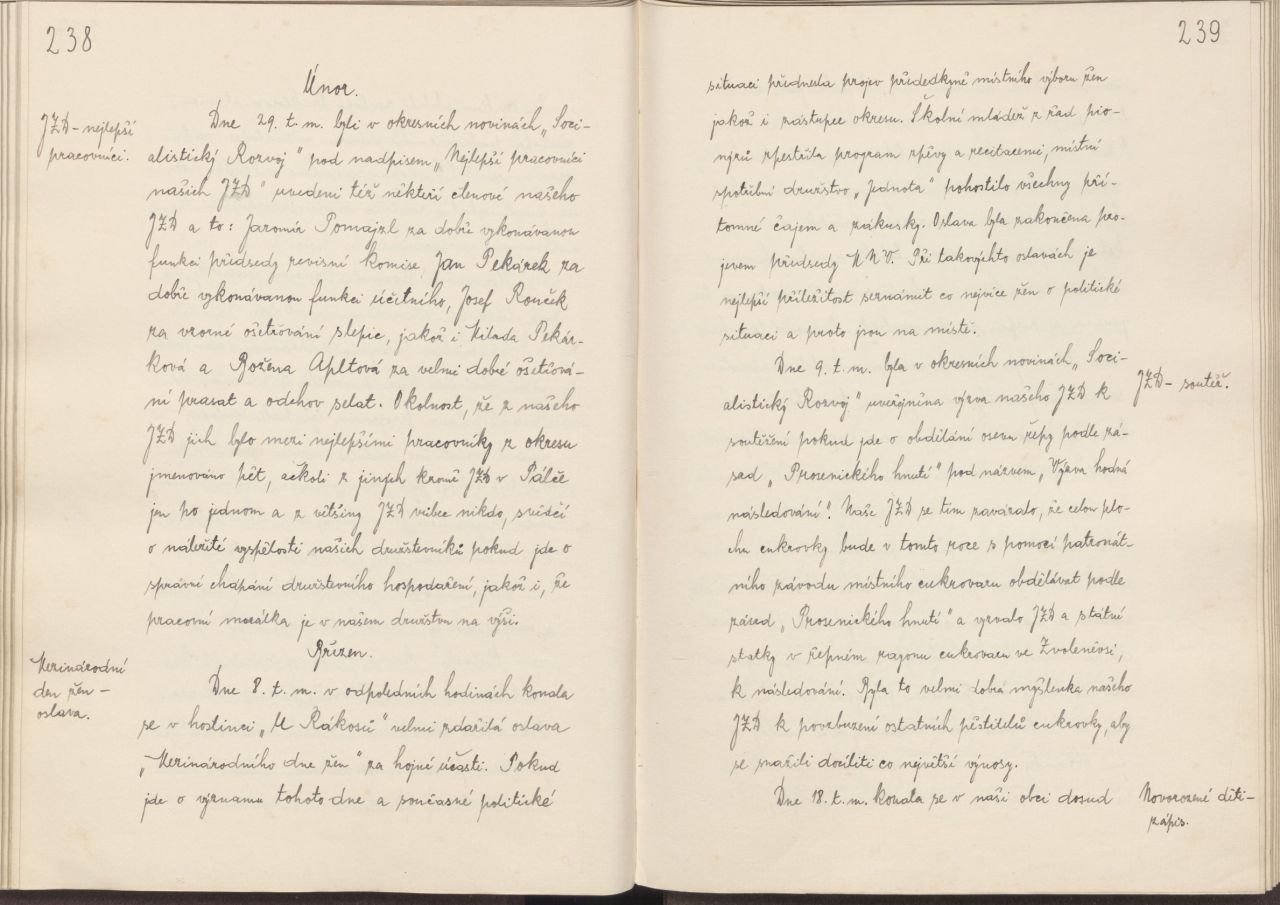 238
Únor.
JZD – nejlepší
pracovníci.
Dne 29. t. m. byli v okresních novinách „Soci-
alistický Rozvoj" pod nadpisem „Nejlepší pracovníci
našich JZD" uvedeni též někteří členové našeho
JZD a to: Jaromír Pomajzl za dobře vykonávanou
funkci předsedy revisní komise, Jan Pekárek za
dobře vykonávanou funkci účetního, Josef Rouček
za vzorné ošetřování slepic, jakož i Milada Pekár-
ková a Božena Apltová za velmi dobré ošetřová-
ní prasat a odchov selat. Okolnost, že z našeho
JZD jich bylo mezi nejlepšími pracovníky z okresu
jmenováno pět, ačkoli z jiných kromě JZD v Pálči
jen po jednom a z většiny JZD vůbec nikdo, svědčí
o náležité vyspělosti našich družstevníků pokud jde o
správné chápání družstevního hospodaření, jakož i, že
pracovní morálka je v našem družstvu na výši.
Březen.
Mezinárodní
den žen –
oslava.
Dne 8. t. m. v odpoledních hodinách konala
se v hostinci „U Rákosů" velmi zdařilá oslava
„Mezinárodního dne žen" za hojné účasti. Pokud
jde o významu tohoto dne a současné politické
239
situaci přednesla projev předsedkyně místního výboru žen
jakož i zástupce okresu. Školní mládež z řad pio-
nýrů zpestřila program zpěvy a recitacemi, místní
spotřební družstvo „Jednota" pohostilo všechny pří-
tomné čajem a zákusky. Oslava byla zakončena pro-
jevem předsedy MNV. Při takovýchto oslavách je
nejlepší příležitost seznámit co nejvíce žen o politické
situaci a proto jsou na místě.
Dne 9. t. m. byla v okresních novinách „Soci-
JZD – soutěž.
alistický Rozvoj" uveřejněna výzva našeho JZD k
soutěžení pokud jde o obdělání osevu řepy podle zá-
sad „Prosenického hnutí" pod názvem „Výzva hodná
následování". Naše JZD se tím zavázalo, že celou plo-
chu cukrovky bude v tomto roce s pomocí patronát-
ního závodu místního cukrovaru obdělávat podle
zásad „Prosenického hnutí" a vyzvalo JZD a státní
statky v řepném rayonu cukrovaru ve Zvoleněvsi,
k následování. Byla to velmi dobrá myšlenka našeho
JZD k povzbuzení ostatních pěstitelů cukrovky, aby
se snažili docíliti co největší výnosy.
Dne 18. t. m. konala se v naší obci dosud
Novorozené děti –
zápis.